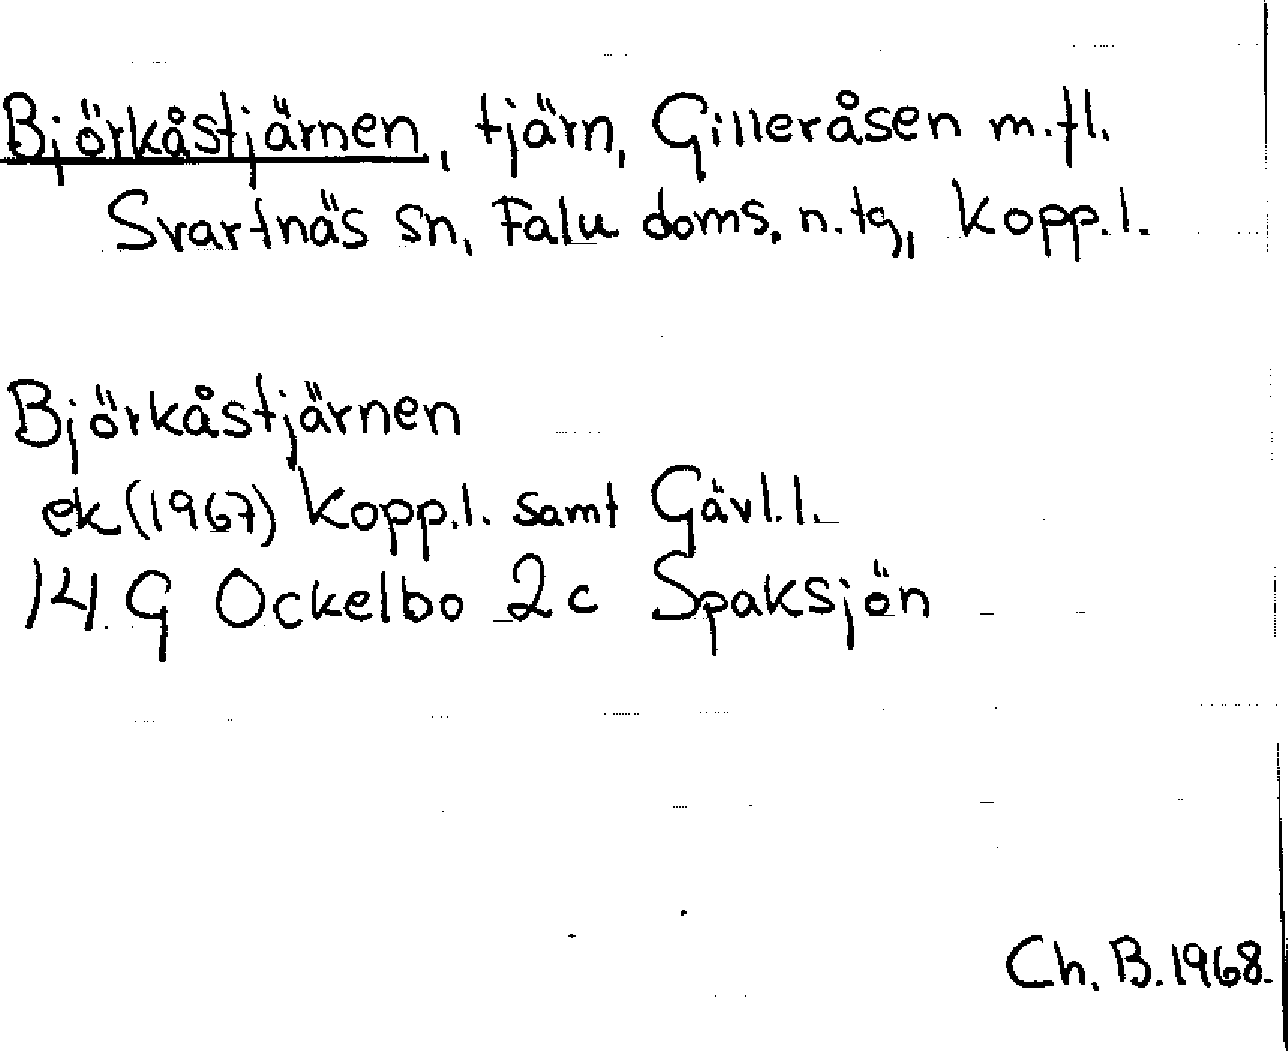 Björkåstjärnen, tjärn, Gilleråsen m.fl.
Svartnäs sn, Falu doms. n. tg, Kopp.l.
Björkåstjärnen
ek (1967) Kopp.l. samt Gävl.l.
14 G Ockelbo 2c Spaksjön
Ch. B. 1968.